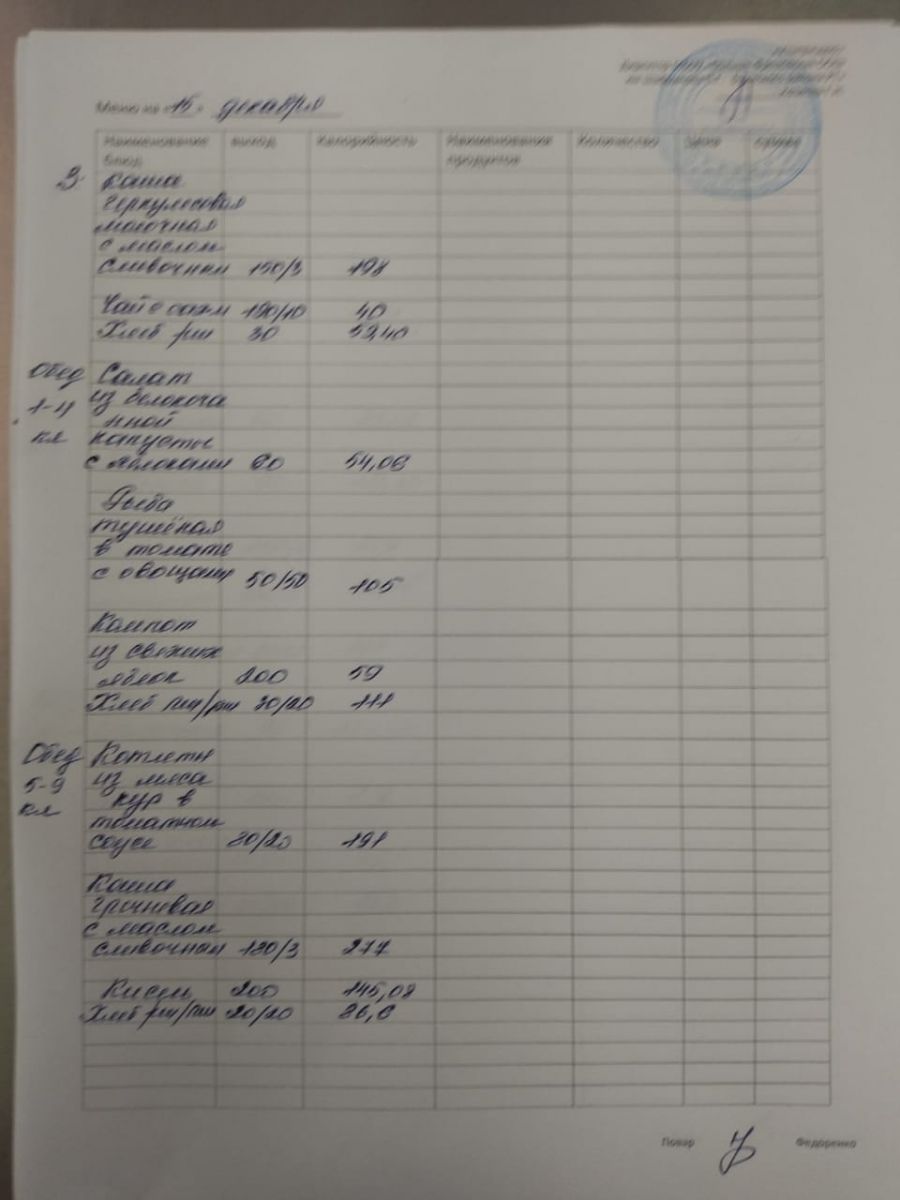 Меню на «15» декабря
Наименование блюд выход Калорийность Наименование продуктов Количество Цена сумма
З Каша
геркулесовая
молочная
с маслом
сливочным 150/3 198
Чай с сахм 190/10 40
Хлеб рж 30 59,40
Обед Салат
1-4 из белокоча
нной
кл капусты
с яблоками 60 54,06
Рыба
тушёная
в томате
с овощами 50/50 105
Компот
из свежих
яблок 200 59
Хлеб пш/рж 30/20 111
Обед Котлеты
5-9 из мяса
кл кур в
томатном
соусе 80/20 191
Каша
гречневая
с маслом
сливочным 180/3 277
Кисель 200 145,08
Хлеб рж/пш 20/20 86,6
Повар Федоренко